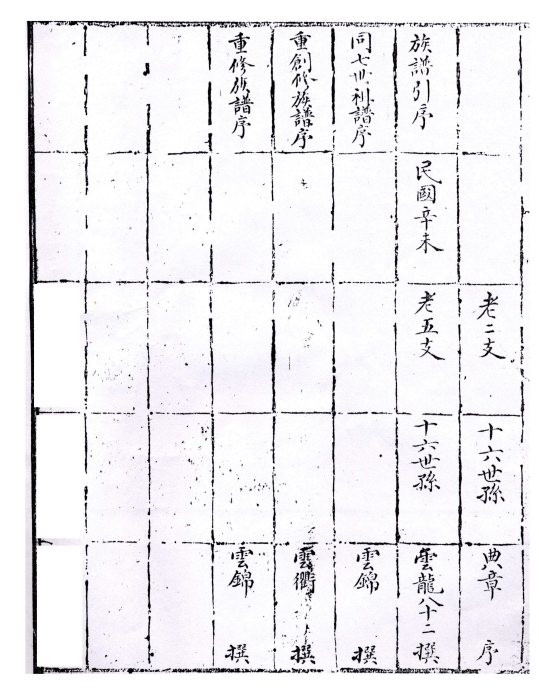 老二支 十六世孫 典章 序
族譜引序 民國辛未 老五支 十六世孫 雲龍八十二 撰
同七世利譜序 雲錦 撰
重創修族譜序 雲衢 撰
重修族譜序 雲錦 撰